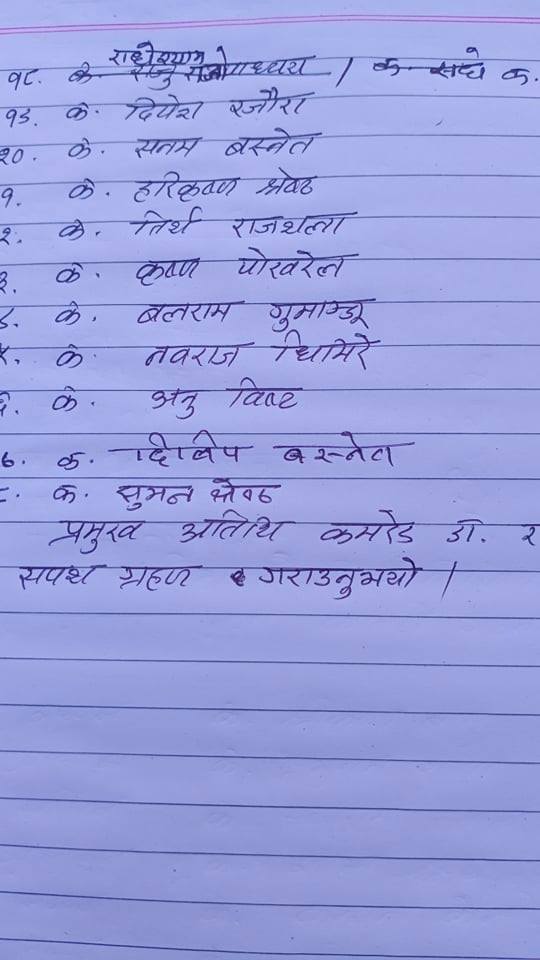 राधेश्याम
१८. क. राजु मध्यरा / क. राधे क.
१९. क. दिपेश रजौरा
२०. क. सनम बस्नेत
१. क. हरिकृष्ण श्रेष्ठ
२. क. तिर्थ राजथला
३. क. कृष्ण पोखरेल
४. क. बलराम गुमाञ्जू
५. क. नवराज घिमिरे
६. क. अनु विष्ट
७. क. दिलिप बस्नेत
८. क. सुमन श्रेष्ठ
प्रमुख अतिथि कमरेड डा. र
सपथ ग्रहण गराउनुभयो ।